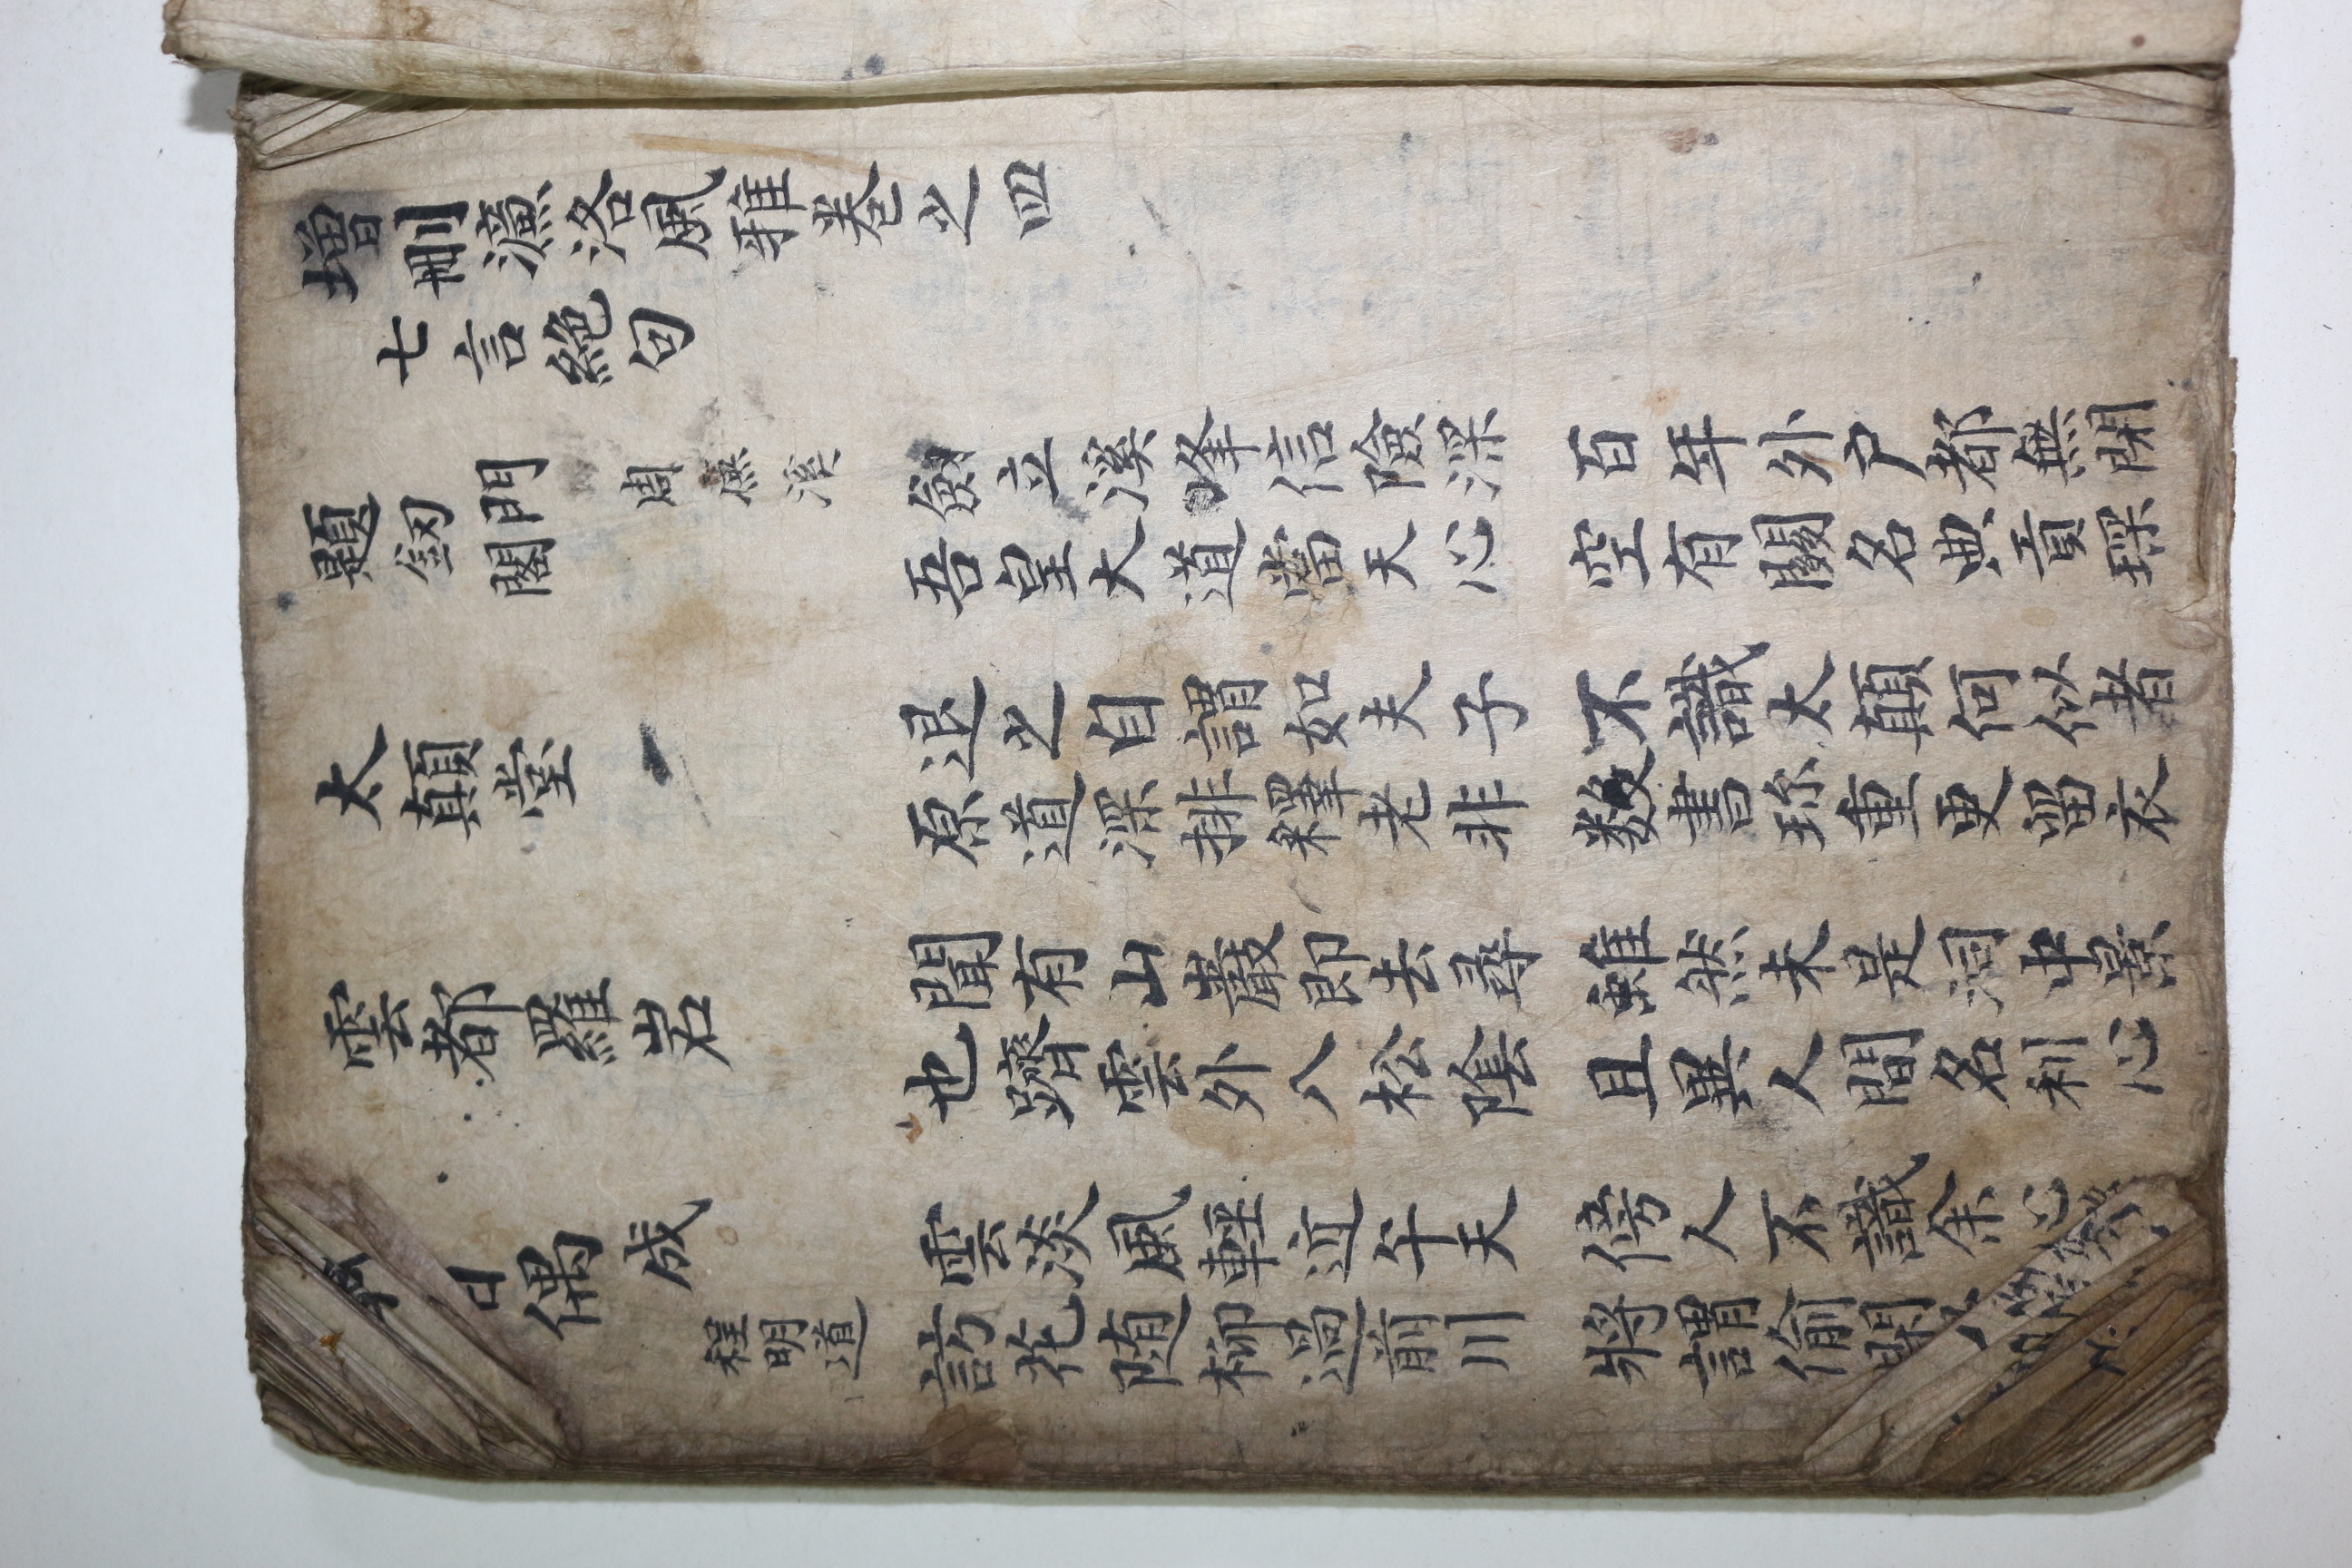 增刪濂洛風雅卷之四
七言絶句
題釖閣門 周濂溪
劔立溪峰信險深
吾皇大道當天心
百年外戶都無閉
空有關名典貢琛
太顚堂
退之自謂如夫子
原道深排釋老非
不識太顚何似者
数書珍重更留衣
雲都羅岩
聞有山巖即去尋
也躋雲外入松陰
雖然未是洞中景
且異人間名利心
日偶成 程明道
雲淡風輕近午天
訪花随柳過前川
傍人不識余心
將謂偷閑